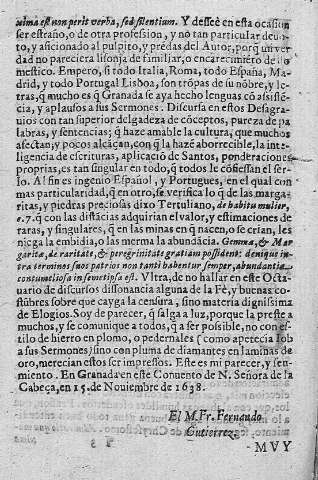 nima est non perit verba, sed silentium. Y desseè en esta ocasiõ
ser estraño, o de otra profession, y no tan particular deuo-
to, y aficionado al pulpito, y prẽdas del Autor, porq̃ mi ver
dad no pareciera lisonja de familiar, o encarecimiẽto do-
mestico. Empero, si todo Italia, Roma, todo España, Ma-
drid, y todo Portugal Lisboa, son trõpas de su nõbre, y le-
tras, q̃ mucho es q̃ Granada se aya hecho lenguas cõ asistẽ-
cia, y aplausos a sus Sermones. Discursa en estos Desagra-
uios con tan superior delgadeza de cõceptos, pureza de pa
labras, y sentencias; q̃ haze amable la cultura, que muchos
afectan, y pocos alcáçan, con q̃ la hazẽ aborrecible, la inte-
ligencia de escrituras, aplicació de Santos, ponderaciones
proprias, es tan singular en todo, q̃ todos le cõfiessan el ser-
lo. Al fin es ingenio Español, y Portugues, en el qual con
mas particularidad, q̃ en otro, se verifica lo q̃ de las marga-
ritas, y piedras preciosas dixo Tertuliano, de habitu mulier.
c. 7. q̃ con las distãcias adquirian el valor, y estimaciones de
raras, y singulares, q̃ en las minas en q̃ nacen, o se crian, les
niega la embidia, o las merma la abundácia. Gemma, & Mar-
garita, de raritate, & peregrinitate gratiam possident: denique in-
tra terminos suos patrios non tanti habentur semper, abundantia
contumeliosa in semetipsa est. Vltra, de no hallar en este Octa-
uario de discursos dissonancia alguna de la Fè, y buenas co-
stũbres sobre que cayga la censura, sino materia dignissima
de Elogios. Soy de parecer, q̃ salga a luz, porque la preste a
muchos, y se comunique a todos, q̃ a ser possible, no con es-
tilo de hierro en plomo, o pedernales (como apetecia Iob
a sus Sermones) sino con pluma de diamantes en laminas de
oro, merecian estos ser impressos. Este es mi parecer, y sen-
timiento. En Granada en este Conuento de N. Señora de la
Cabeça, en 15. de Nouiembre de 1638.
El M. Fr. Fernando
Gutierrez.
MVY